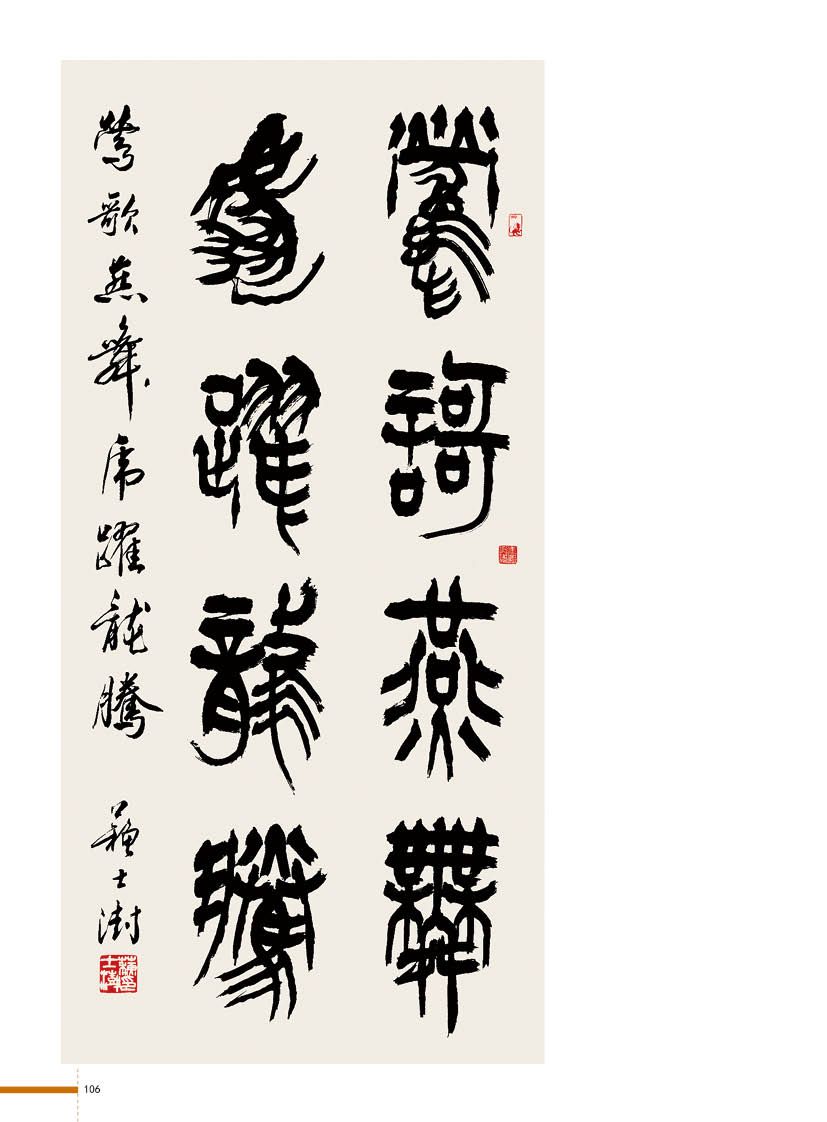 鶯謌燕舞
虎躍龍騰
鶯歌燕舞虎躍龍騰 蘇士澍
106